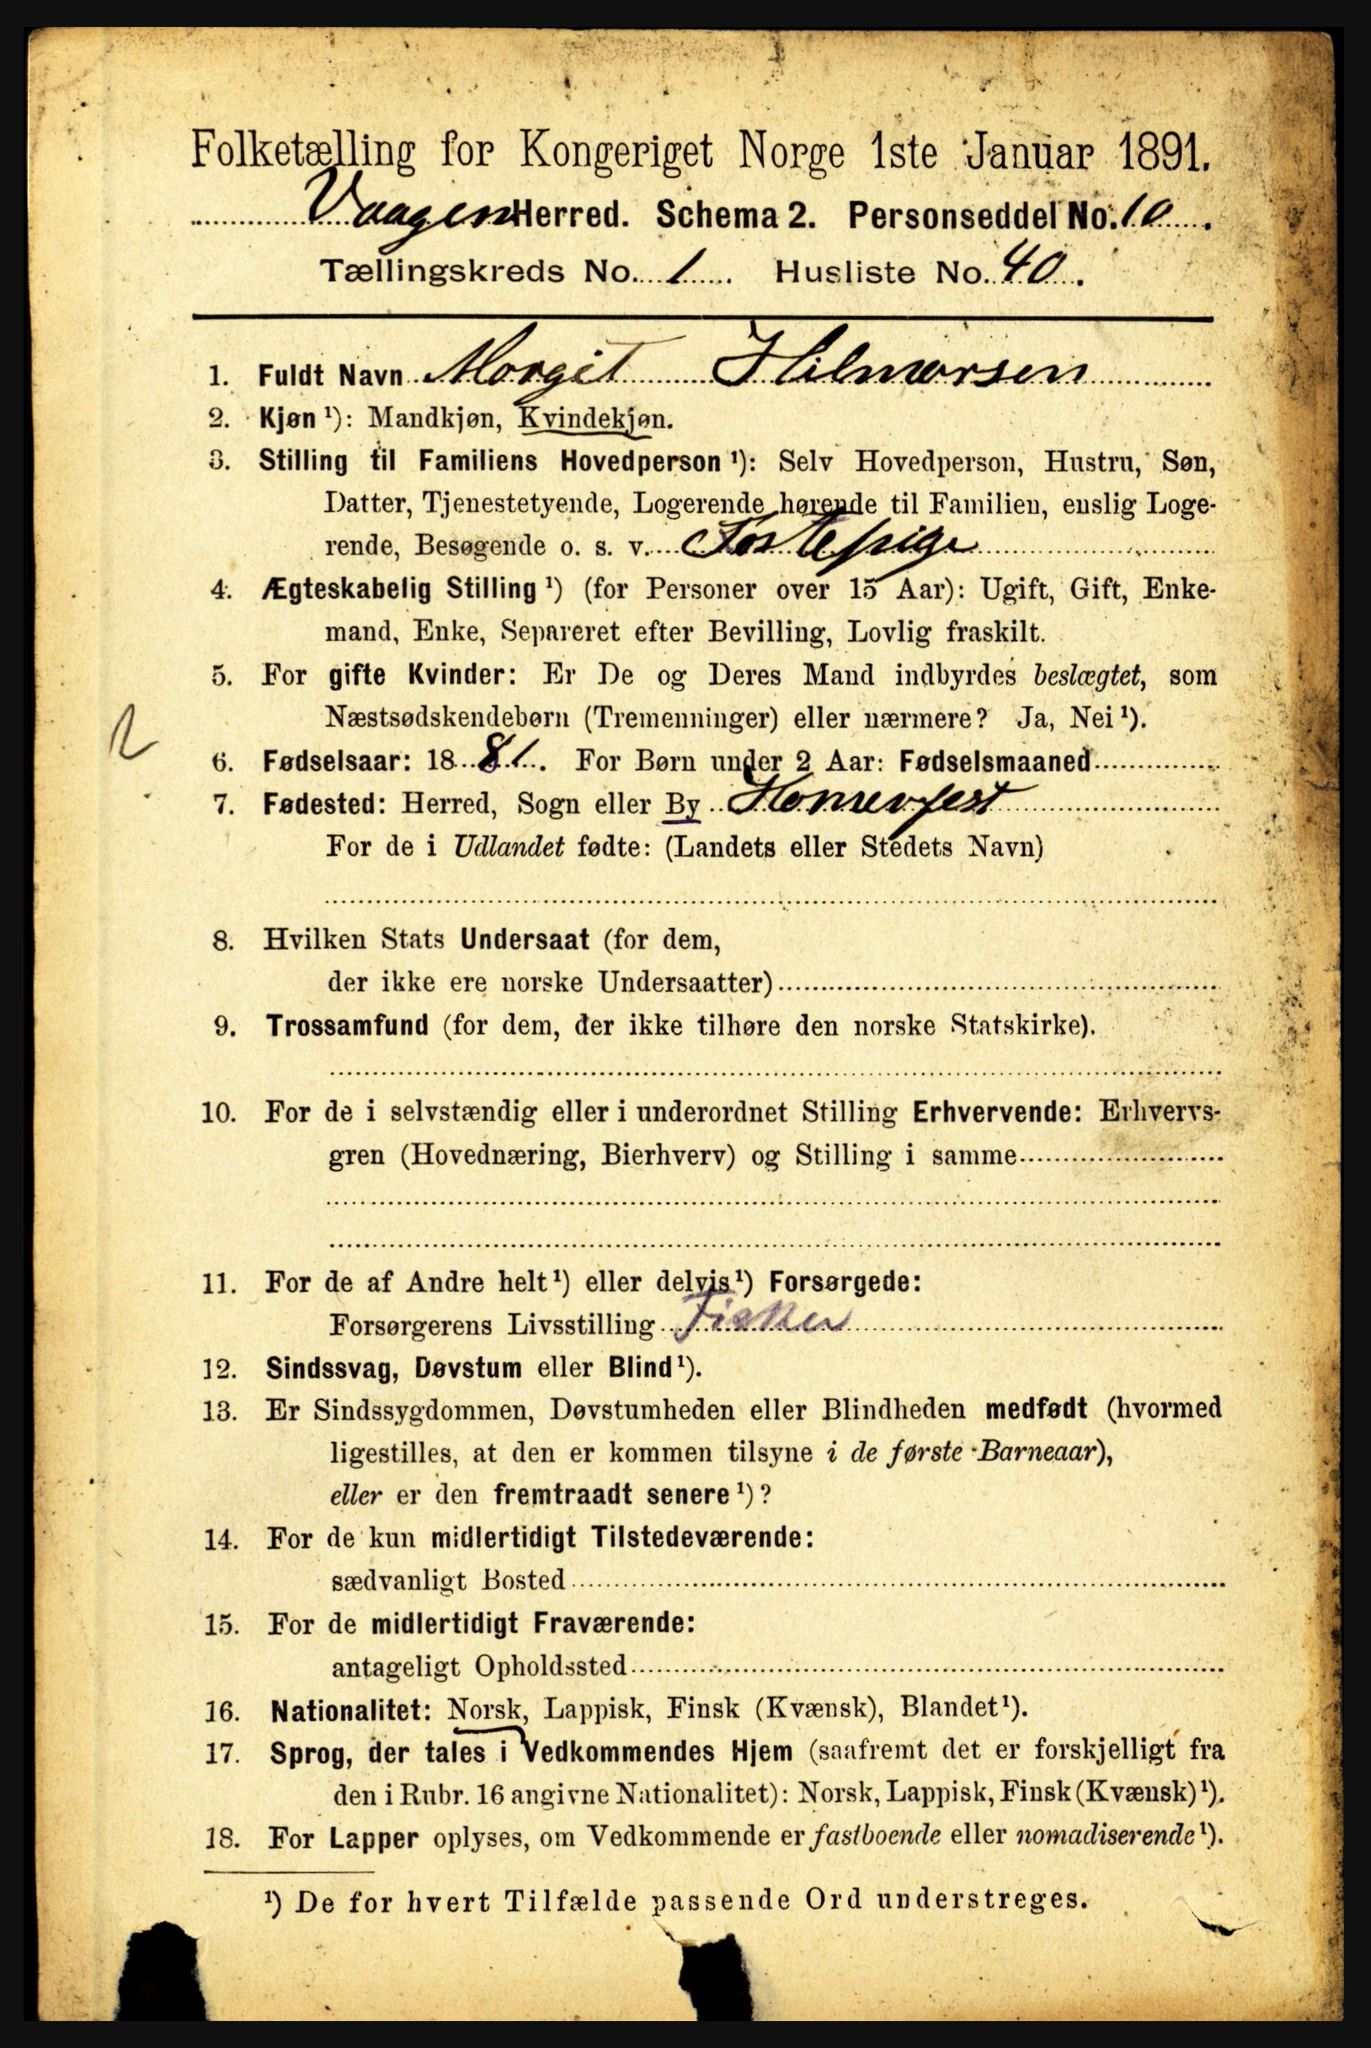 Folketælling for Kongeriget Norge 1ste Januar 1891.
Vaagen Herred. Schema 2. Personseddel No. 10.
Tællingskreds No. 1. Husliste No. 40.
1. Fuldt Navn Margit Hilmarsen
2. Kjøn ¹): Mandkjøn, Kvindekjøn.
3. Stilling til Familiens Hovedperson ¹): Selv Hovedperson, Hustru, Søn,
Datter, Tjenestetyende, Logerende hørende til Familien, enslig Loge-
rende, Besøgende o. s. v. Fostepige
4. Ægteskabelig Stilling ¹) (for Personer over 15 Aar): Ugift, Gift, Enke-
mand, Enke, Separeret efter Bevilling, Lovlig fraskilt.
5. For gifte Kvinder: Er De og Deres Mand indbyrdes beslægtet, som
Næstsødskendebørn (Tremenninger) eller nærmere? Ja, Nei ¹).
2
6. Fødselsaar: 1881. For Børn under 2 Aar: Fødselsmaaned
7. Fødested: Herred, Sogn eller By
For de i Udlandet fødte: (Landets eller Stedets Navn)
8. Hvilken Stats Undersaat (for dem,
der ikke ere norske Undersaatter)
9. Trossamfund (for dem, der ikke tilhøre den norske Statskirke).
10. For de i selvstændig eller i underordnet Stilling Erhvervende: Erhvervs-
gren (Hovednæring, Bierhverv) og Stilling i samme
11. For de af Andre helt ¹) eller delvis ¹) Forsørgede:
Forsørgerens Livsstilling Fisker
12. Sindssvag, Døvstum eller Blind ¹).
13. Er Sindssygdommen, Døvstumheden eller Blindheden medfødt (hvormed
ligestilles, at den er kommen tilsyne i de første Barneaar),
eller er den fremtraadt senere ¹)?
14. For de kun midlertidigt Tilstedeværende:
sædvanligt Bosted
15. For de midlertidigt Fraværende:
antageligt Opholdssted
16. Nationalitet: Norsk, Lappisk, Finsk (Kvænsk), Blandet ¹).
17. Sprog, der tales i Vedkommendes Hjem (saafremt det er forskjelligt fra
den i Rubr. 16 angivne Nationalitet): Norsk, Lappisk, Finsk (Kvænsk) ¹).
18. For Lapper oplyses, om Vedkommende er fastboende eller nomadiserende ¹).
¹) De for hvert Tilfælde passende Ord understreges.